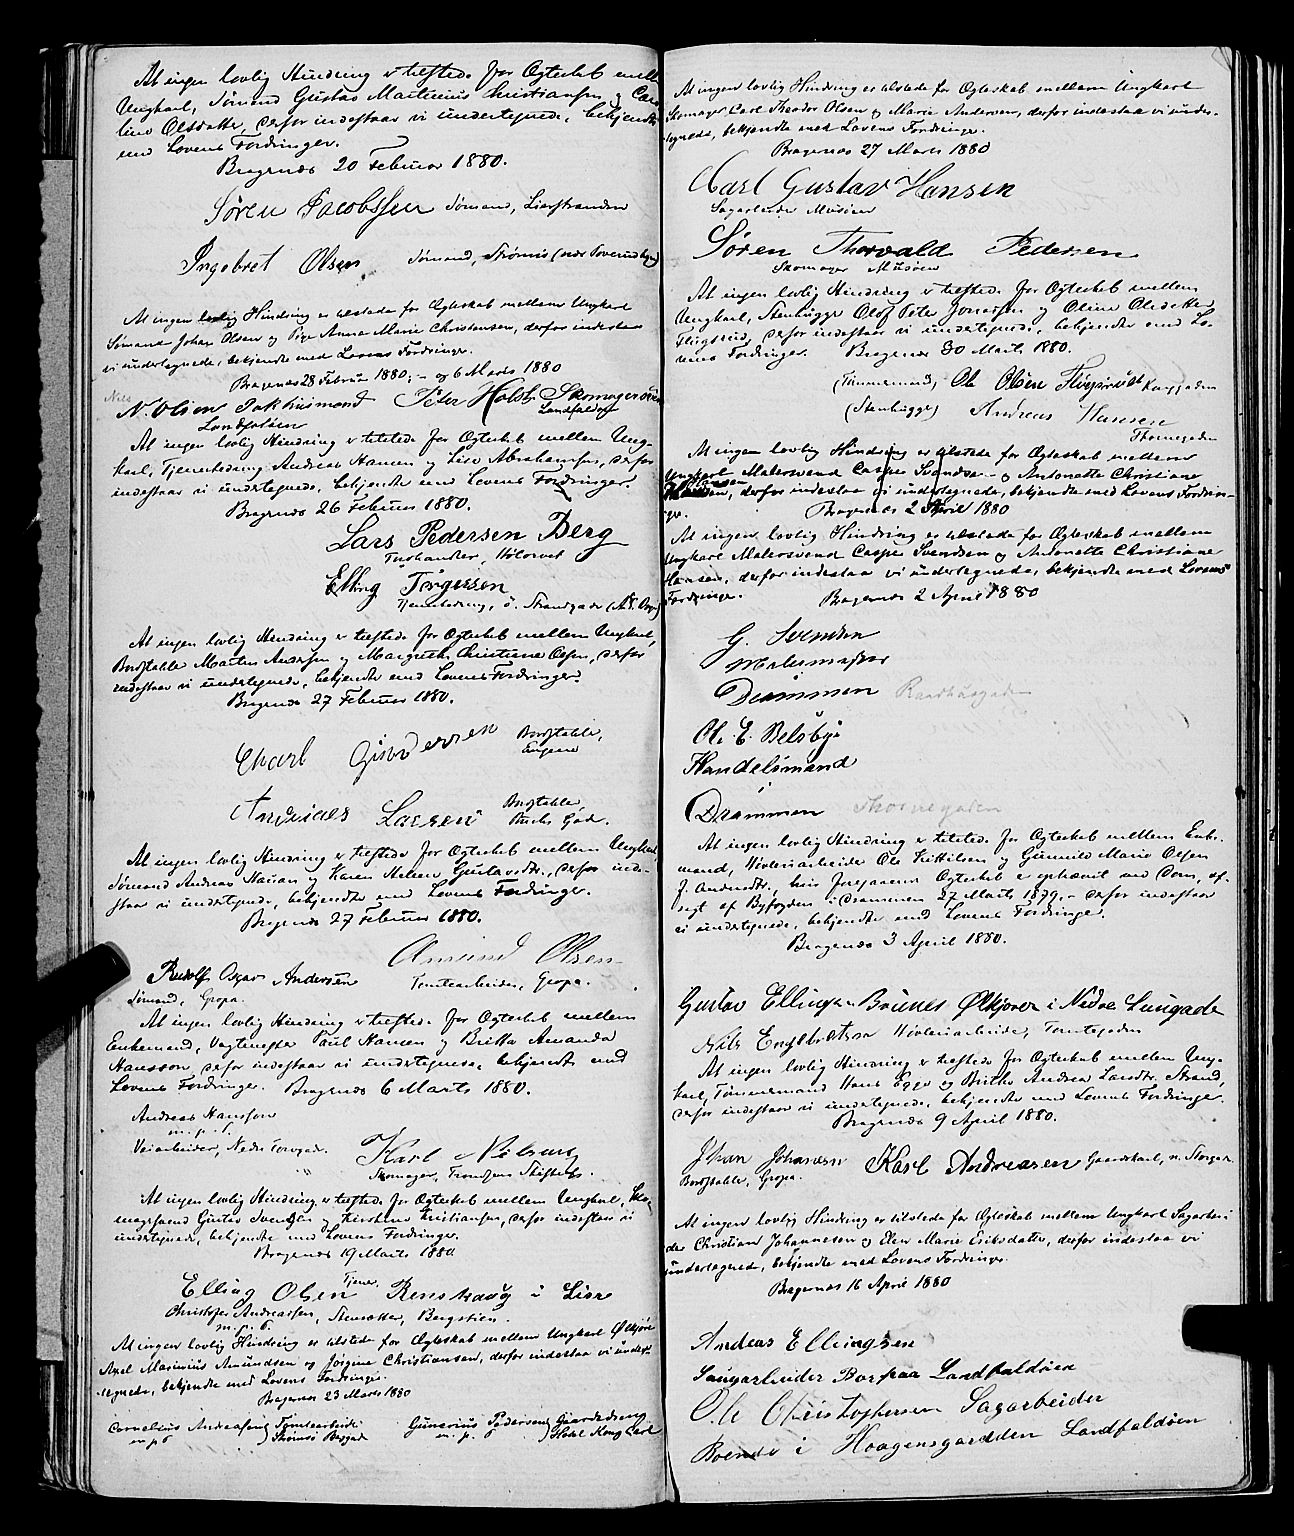 At ingen lovlig Hindring er tilstede for Ægteskab mellem
Ungkarl, Sømand Gustav Martinius Christiansen og Caro-
line Olsdatter, derfor indestaar vi undertegnede, bekjendte
med Lovens Fordringer.
Bragernæs 20 Februar 1880.
Søren Jacobssen Sømand, Lierstranden
Ingebret Olsen Sømand, Strømsø
At ingen lovlig Hindring er tilstede for Ægteskab mellem Ungkarl
Sømand Johan Olsen og Pige Anna Marie Christensen, derfor indestaa
vi undertegnede, bekjendte med Lovens Fordringer.
Bragernæs 28 Februar 1880, – og 6 Marts 1880
N. Olsen Peter Holst Skomager
Landfaløen Landfaløen
At ingen lovlig Hindring er tilstede for Ægteskab mellem Ung-
karl, Tjenestedreng Andreas Hansen og Lise Abrahamsen, derfor
indestaar vi undertegnede, bekjendte med Lovens Fordringer.
Bragernæs 26 Februar 1880.
Lars Pedersen Berg
Elling Torgersen
Tjenestedreng, ö. Strandgade
At ingen lovlig Hindring er tilstede for Ægteskab mellem Ungkarl,
Bordstabler Martin Andersen og Margrethe Christiane Olsen, derfor
indestaar vi undertegnede, bekjendte med Lovens Fordringer.
Bragernæs 27 Februar 1880.
Charl Gundersen Bordstabler,
Engene
Andreas Larsen Bordstabler
At ingen lovlig Hindring er tilstede for Ægteskab mellem Ungkarl
Sømand Andreas Hansen og Karen Helene Gustavsdtr., derfor inde-
staar vi undertegnede, bekjendte med Lovens Fordringer.
Bragernæs 27 Februar 1880.
Amund Olsen
Rudolf Oscar Andersen Tomtearbeider, Gropa.
Sømand, Gropa.
At ingen lovlig Hindring er tilstede for Ægteskab mellem
Enkemand, Vagtmester Paul Hansen og Britta Amanda
Hansson, derfor indestaar vi undertegnede, bekjendte med
Lovens Fordringer. Bragernæs 6 Marts 1880.
Andreas Hansson
m. p. P.
Veiarbeider, Nedre Torvgad.
Karl Nilsen
Skomager,
At ingen lovlig Hindring er tilstede for Ægteskab mellem Ungkarl, Sko-
magersvend Gustav Svendsen og Kirstine Kristiansen, derfor indestaar vi
undertegnede, bekjendte med Lovens Fordringer.
Bragernæs 19 Marts 1880
Elling Olsen Tjener, Renskaug i Lier
Christofer Andreassen, Bergstien
m. p. P.
At ingen lovlig Hindring er tilstede for Ægteskab mellem Ungkarl Ølkjører
Axel Marinius Amundsen og Jørgine Christiansen, derfor indestaa vi under-
tegnede, bekjendte med Lovens Fordringer.
Bragernæs 23 Marts 1880
Cornelius Andreassen Tomtearbeider Gunerius Pedersen Gaardsdreng
m. p. P. Strømsø m. p. P. Hotel Kong Carl
At ingen lovlig Hindring er tilstede for Ægteskab mellem Ungkarl
Skomager Carl Theodor Olsen og Marie Andersen, derfor indestaa vi under-
tegnede, bekjendte med Lovens Fordringer.
Bragernæs 27 Marts 1880
Carl Gustav Hansen
Sagarbeider Muusøen
Søren Thorvald Pedersen
Skomager Muusøen
At ingen lovlig Hindring er tilstede for Ægteskab mellem
Ungkarl, Stenhugger Olof Peter Jonassen og Oline Olsdatter
derfor indestaar vi undertegnede, bekjendte med Lo-
vens Fordringer. Bragernæs 30 Marts 1880.
(Tømmermand) Ole Olsen
(Stenhugger) Andreas Hansen
Thornegaden
At ingen lovlig Hindring er tilstede for Ægteskab mellem
Ungkarl Malersvend Casper Svendsen og Antonette Christiane
Hansen, derfor indestaa vi undertegnede, bekjendte med Lovens Fordrin-
ger. Bragernæs 2 April 1880
At ingen lovlig Hindring er tilstede for Ægteskab mellem
Ungkarl Malersvend Casper Svendsen og Antonette Christiane
Hansen, derfor indestaa vi undertegnede, bekjendte med Lovens
Fordringer. Bragernæs 2 April 1880
G. Svendsen
Malermester
Drammen Raadhusgaden
Ole E. Belsbye
Handelsmand
Drammen Thornegaden
At ingen lovlig Hindring er tilstede for Ægteskab mellem Enke-
mand, Høvleriarbeider Ole Kittilsen og Gunnild Marie Olsen
f. Andersdtr., hvis forrige Ægteskab er ophævet ved Dom, af-
sagt af Byfogden i Drammen 27 Marts 1879, – derfor indestaar
vi undertegnede, bekjendte med Lovens Fordringer.
Bragernæs 3 April 1880.
Gustav Ellingsen Brunes Ølkjører i Nedre Langade
Nils Engebretsen Høvleriarbeider, Tomtegaden
At ingen lovlig Hindring er tilstede for Ægteskab mellem Ung-
karl, Tømmermand Hans Egge og Birthe Andrea Larsdtr. Strand,
derfor indestaar vi undertegnede, bekjendte med Lovens Fordringer.
Bragernæs 9 April 1880.
Johan Johansen Karl Andreasen Gaardskarl, n. Storgade
Bordstabler, Gropa.
At ingen lovlig Hindring er tilstede for Ægteskab mellem Ungkarl Sagarbei-
der Christian Johannesen og Elen Marie Eriksdatter, derfor indestaa vi
undertegnede, bekjendte med Lovens Fordringer.
Bragernæs 16 April 1880
Andreas Ellingsen
Saugarbeider Bor paa Landfaldøen
Ole Christophersen Sagarbeider
Boende i Haagensgardden Landfaldøen